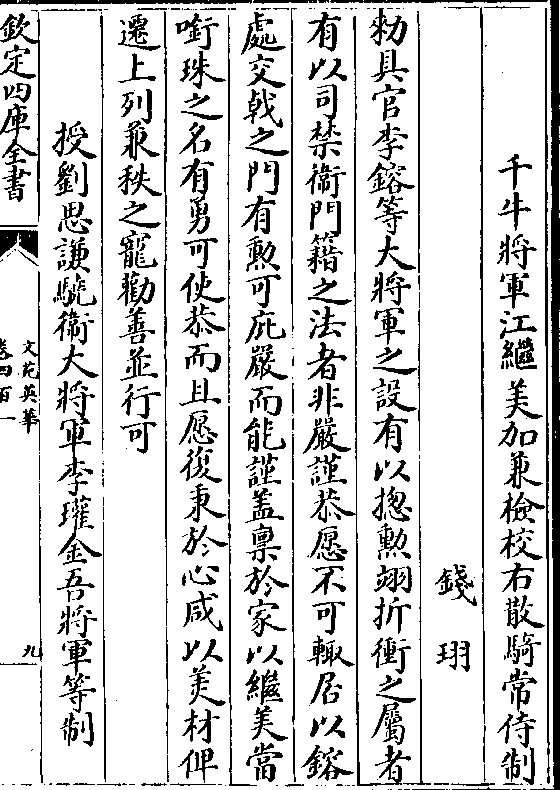 千牛將軍江繼美加兼檢校右散騎常侍制
錢珝
勑具官李鎔等大將軍之設有以捴勲翊折衝之屬者
有以司禁衞門籍之法者非嚴謹恭愿不可輙居以鎔
處交戟之門有勲可庇嚴而能謹盖禀於家以繼美當
嘝珠之名有勇可使恭而且愿復秉於心咸以美材俾
遷上列兼秩之寵勸善並行可
授劉思謙驍衞大將軍李瓘金吾將軍等制
欽定四庫全書
文苑英華
卷四百一
九